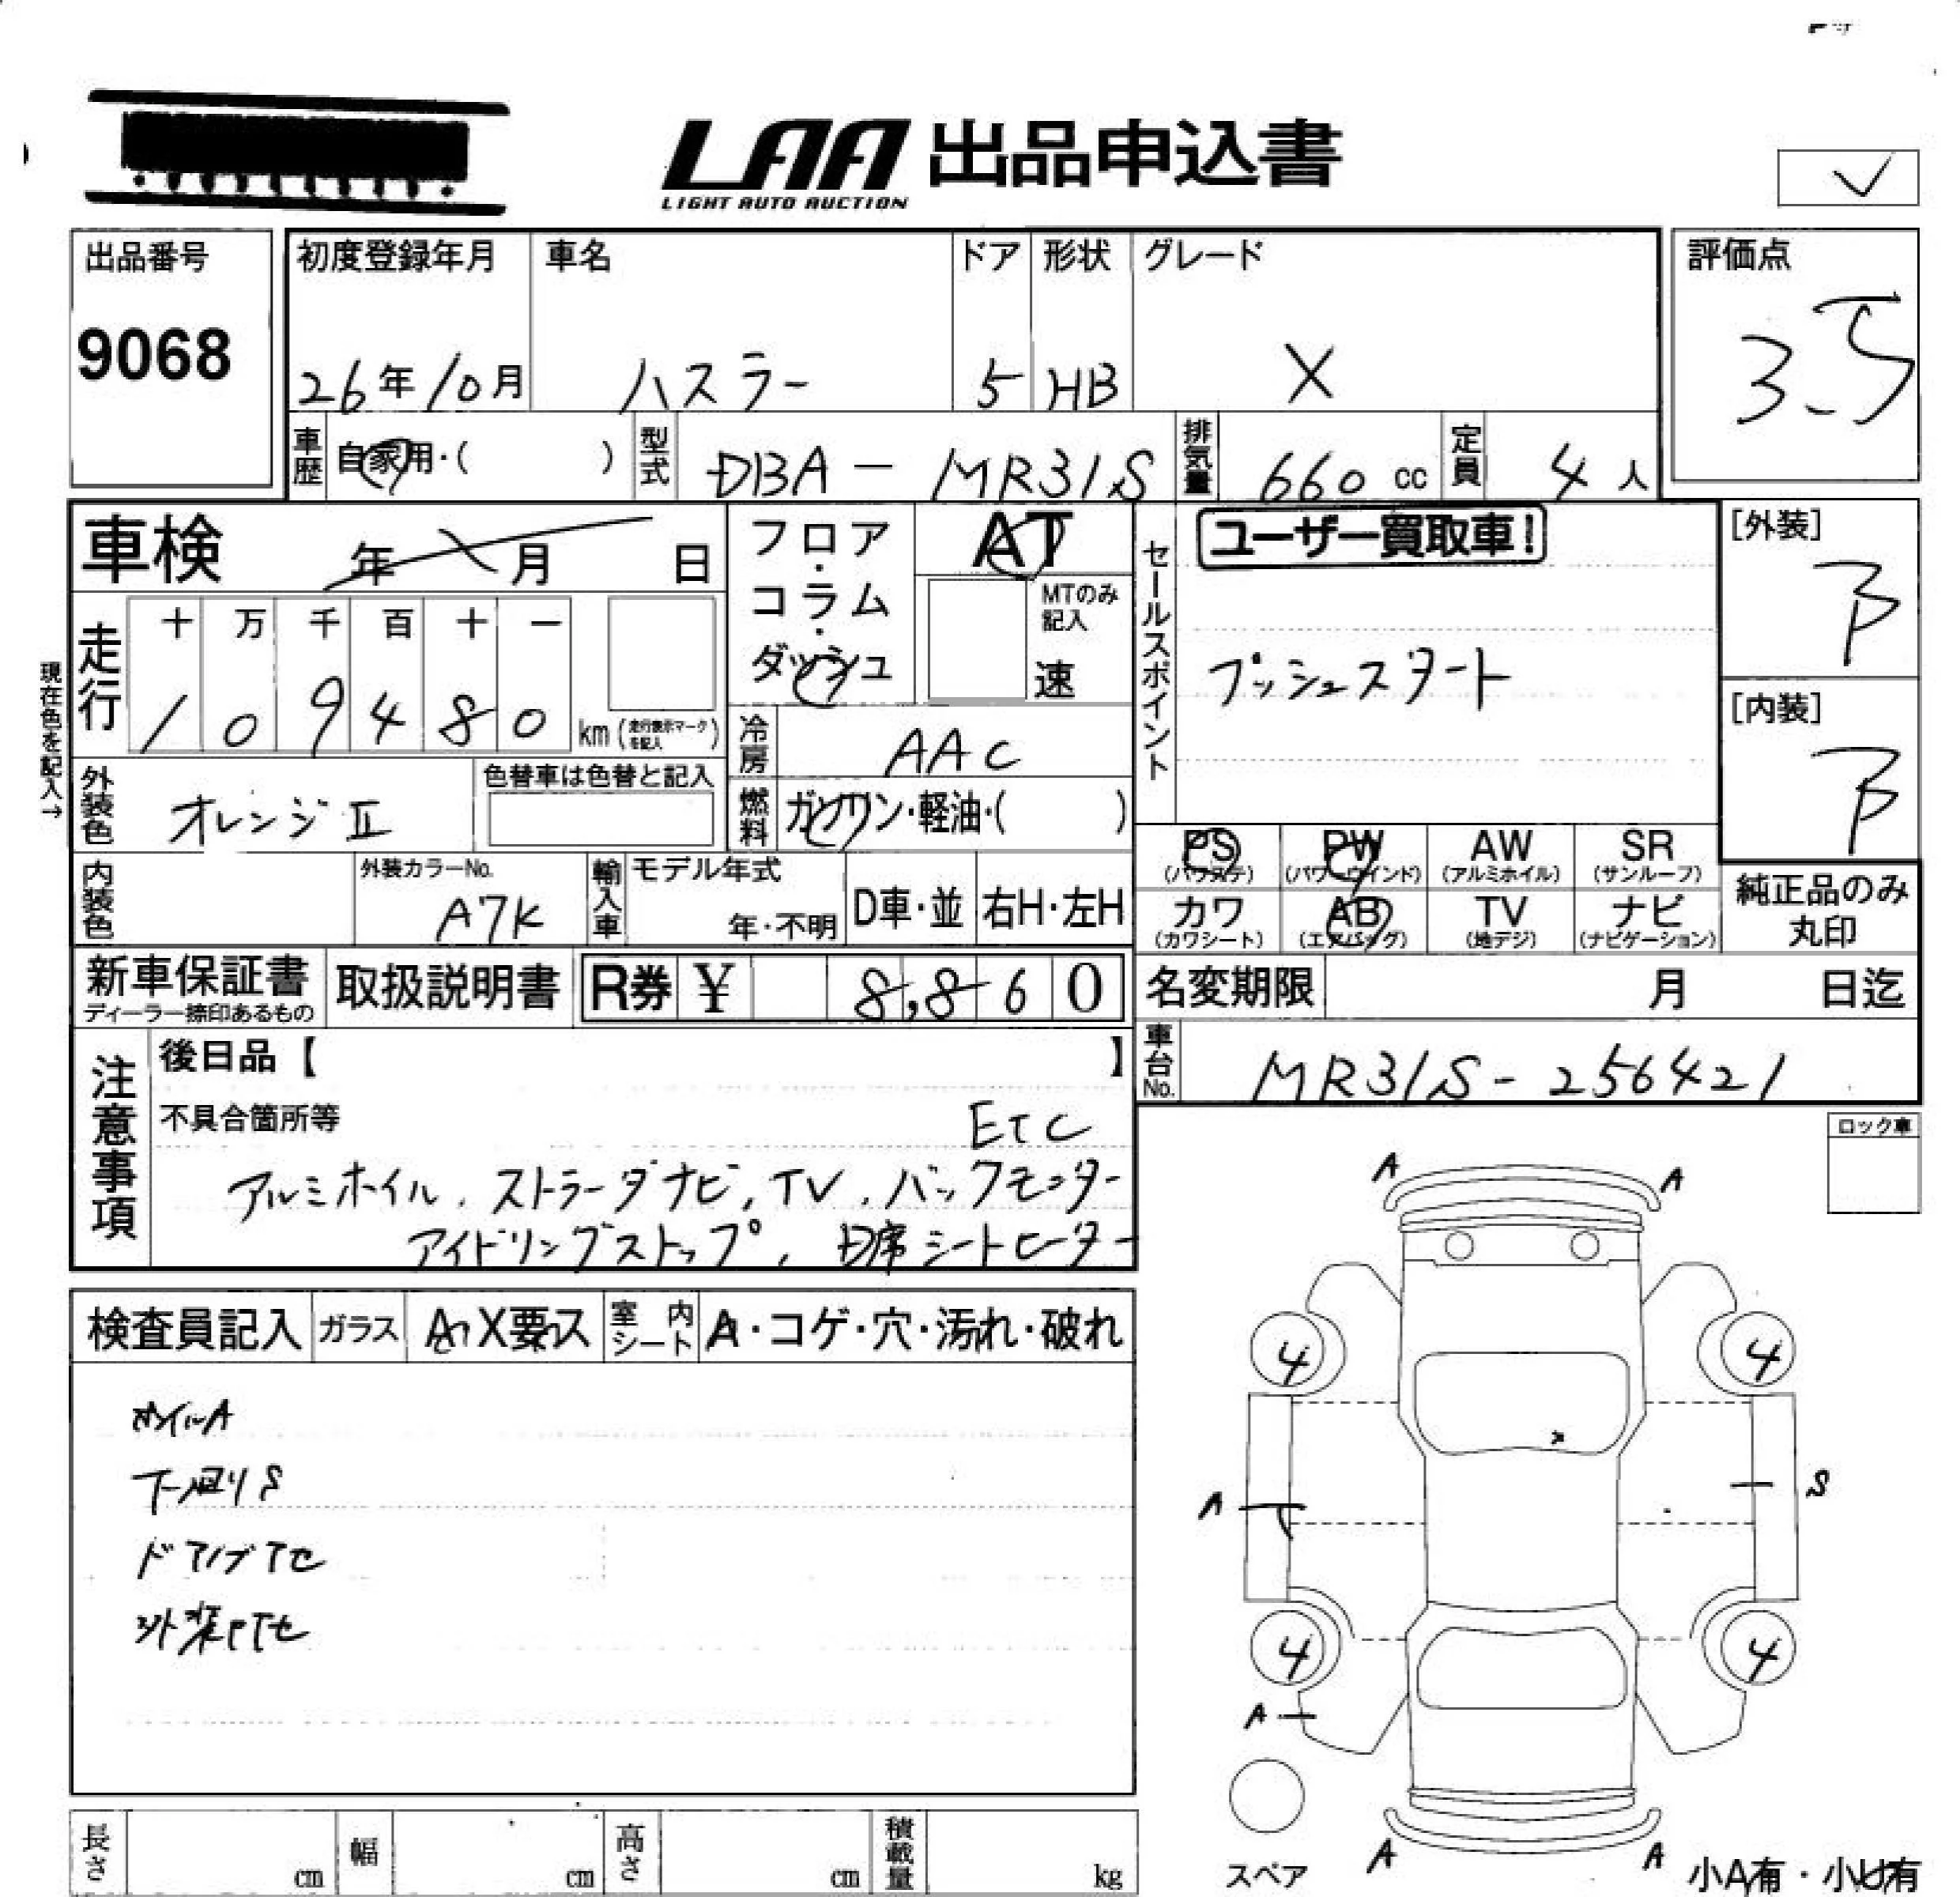 LAA 出品申込書
LIGHT AUTO AUCTION
✓
出品番号
9068
初度登録年月 車名 ドア 形状 グレード
26年10月 ハスラー 5 HB X
評価点
3.5
車歴 自家用・( ) 型式 DBA - MR31S 排気量 660 cc 定員 4人
車検 年 月 日
フロア・コラム・ダッシュ
AT
MTのみ記入
速
セールスポイント
ユーザー買取車!
プッシュスタート
[外装]
B
[内装]
B
現在色を記入→
走行 十 万 千 百 十 一
1 0 9 4 8 0 km (走行表示マークを記入)
冷房 AAC
外装色 オレンジII
色替車は色替と記入
燃料 ガソリン・軽油・( )
PS (パワステ) PW (パワーウインド) AW (アルミホイル) SR (サンルーフ)
カワ (カワシート) AB (エアバッグ) TV (地デジ) ナビ (ナビゲーション)
純正品のみ
丸印
内装色 外装カラーNo. A7K
輸入車 モデル年式 年・不明 D車・並 右H・左H
新車保証書
ディーラー捺印あるもの
取扱説明書 R券 ¥ 8,860
名変期限 月 日迄
車台No. MR31S - 256421
注意事項
後日品【 】
不具合箇所等 ETC
アルミホイル、ストラーダナビ、TV、バックモニター
アイドリングストップ、D席シートヒーター
ロック車
検査員記入 ガラス A・X要ス 室内シート A・コゲ・穴・汚れ・破れ
ホイルA
下廻りS
ドアノブアセ
外装アセ
A A
4 4
A S
4 4
A
A A
スペア
小A有・小U有
長さ cm 幅 cm 高さ cm 積載量 kg